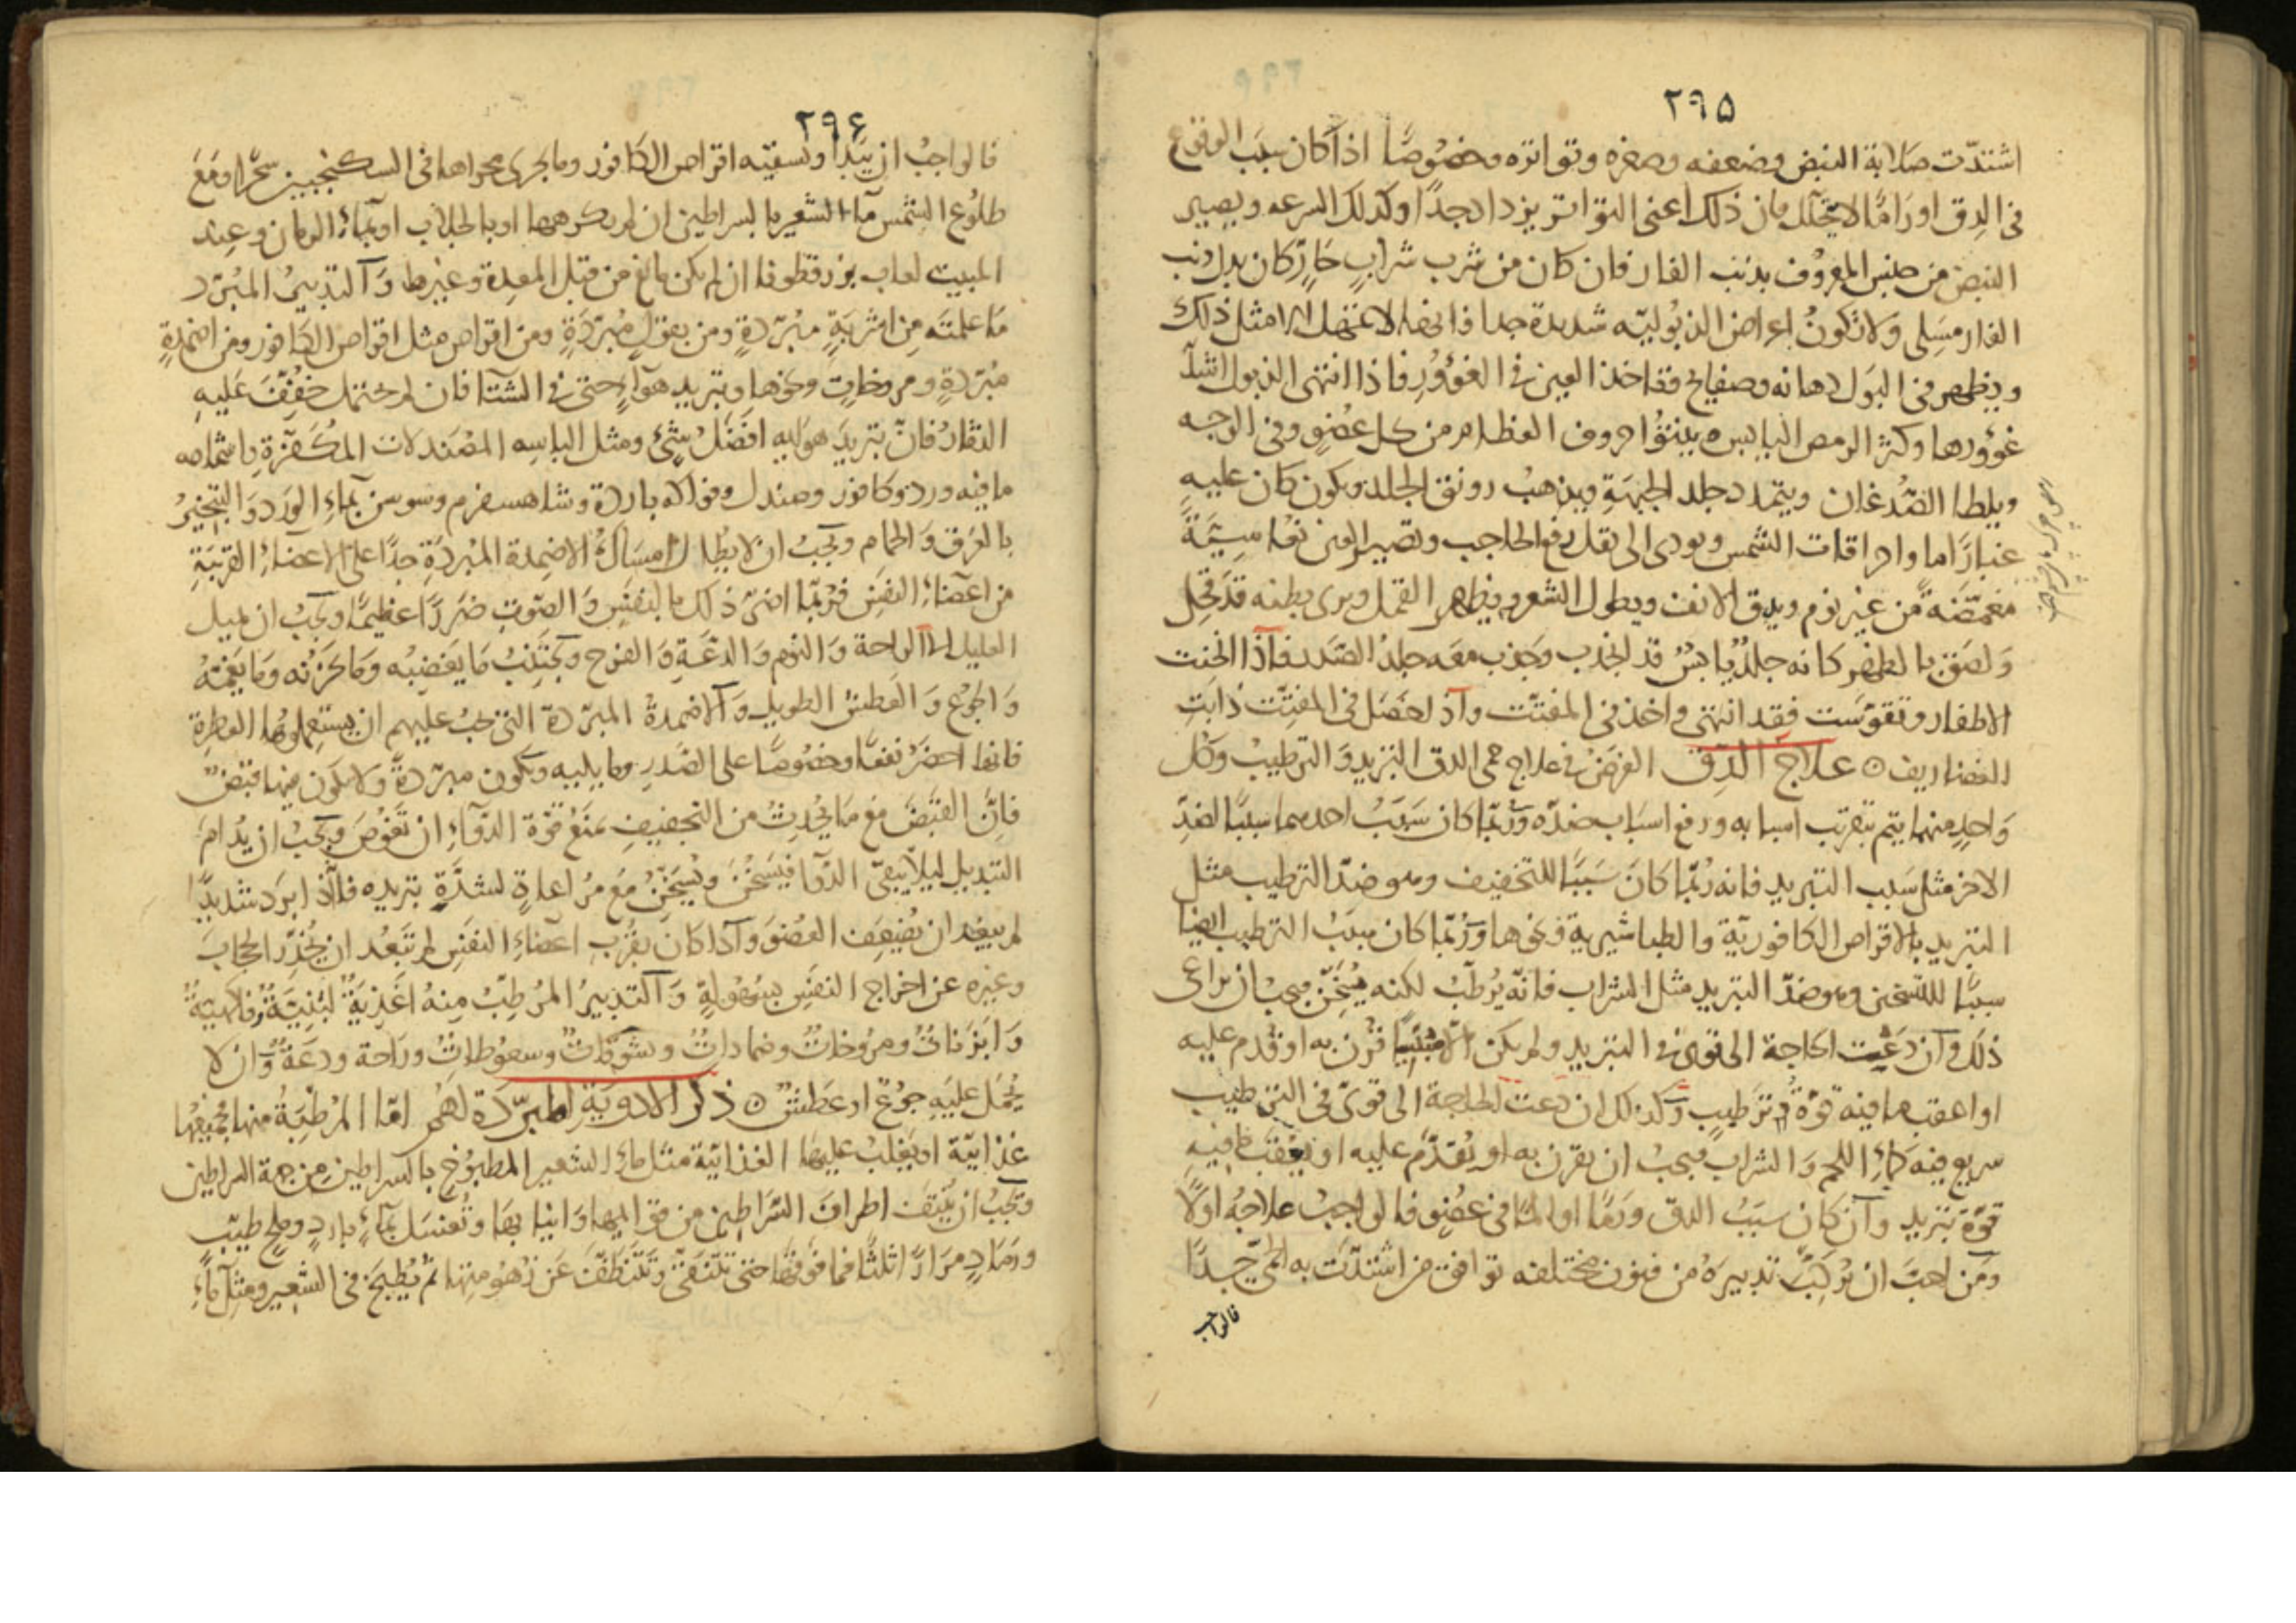 ۲۹۵
اشتدّت صلابة النبض وضعفه وصغره وتواتره وخصوصًا اذا كان سبب الوقوع
فى الدق اورامًا لا تتحلّل فان ذلك اعنى التواتر يزداد جدًا وكذلك السرعه ويصير
النبض من جنس المعروف بذنب الفار فان كان من شرب شرابٍ حارٍّ كان بدل ذنب
الفار مسلى ولا تكونُ اعراض الذبوليّه شديدة جدا فانها لا تمتهل الا مثل ذلك
ويظهر فى البول دهانه وصفايح فتاخذ العين فى الغؤورِ فاذا انتهى الذبول اشتدّ
غؤورها وكثر الرمص اليابس وينتؤا حروف العظام من كل عضوٍ وفى الوجه
ويلطا الصُدغان ويتمدد جلد الجبهةِ ويذهبُ رونق الجلد ويكون كان عليه
غبارًا ما واحراقات الشمس ويودى الى ثقل رفع الحاجب وتصير العين نعاسيّةً
مغمّضةً من غير نوم ويدق الانف ويطول الشعر ويظهر القمل ويرى بطنه قد قحل
ولصق بالظهر كانه جلدٌ يابسٌ قد انجذب وجذب معه جلدُ الصدر فاذا انحنت
الاظفار وتقوّست فقد انتهى واخذ فى المفتّت واذا حصل فى المفتّت ذابتِ
الغضاريف ۞ علاج الدّق الغرضُ فى علاج حمى الدق التبريد والترطيبُ وكل
واحدٍ منهما يتم بتقريب اسبابه ورفع اسباب ضدّه وربّما كان سببُ احدهما سببًا لضدِّ
الاخر مثل سبب التبريد فانه ربّما كان سببًا للتجفيف وهو ضدّ الترطيب مثل
التبريد بالاقراص الكافوريّة والطباشيرية ونحوها وربّما كان سببُ الترطيب ايضا
سببًا للتسخين وهو ضدّ التبريد مثل الشراب فانّه يُرطّبُ لكنه يُسخّنُ فيجب ان يراعى
ذلك وان دعت الحاجة الى قوىّ فى التبريد ولم يكن الا مثبتًا قُرن به او قُدم عليه
او اعقب ما فيه قوّةُ ترطيبٍ وكذلك ان دعت الحاجة الى قوىّ فى الترطيب
سريع فيه كماءِ اللحم والشراب فيجبُ ان يقرن به او يُقدّم عليه او يعقب ما فيه
قوّة تبريدٍ وان كان سببُ الدق ورمًا او المًا فى عضوٍ فالواجبُ علاجُه اولًا
ومن احبّ ان يُركّبَ تدبيرَهُ من فنون مختلفه توافق من اشتدّت به الحمّى جدًا
فالواجب
۲۹۶
فالواجبُ ان يبدا وتسقيه اقراص الكافور وما يجرى مجراها فى السكنجبين سحرًا ومع
طلُوع الشمس ماء الشعير بالسراطين ان لم يكرهها او بالجلاب او بماءِ الرمان وعند
المبيت لعاب بزرقطونا ان لم يكن مانع من قبل المعدة وغيرها والتدبيرُ المُبرّد
ما علمتَه مِن اشربةٍ مبُرّدةٍ ومن بقولٍ مُبرّدةٍ ومن اقراص مثل اقراص الكافور ومن اضمدةٍ
مُبرّدة ومروخاتٍ ونحوها وتبريد هواءٍ حتى فى الشتا فان لم يحتمل خفّف عليهِ
الدّثارُ فانّ تبريدَ هوايه افضلُ شىءٍ ومثل الباسه المصَندلات المُكفّرة واشمامه
ما فيه ورد وكافور وصندل وفواكه باردة وشاهسفرم وسوسن بماءِ الورد والتبخيرُ
بالعرق والحمام ويجبُ ان لا يطال امساكُ الاضمدة المُبردَةِ جدًا على الاعضاءِ القريبةِ
من اعضاءِ النفس فربّما اضرّ ذلك بالنفس والصوتِ ضررًا عظيمًا ويجبُ ان يميل
العليل الى الراحة والنوم والدّعةِ والفرح ويجتنبُ ما يغضبُه وما يحزنُه وما يغمّهُ
والجوُع والعطش الطويل والاضمدةُ المبرّدة التى يجبُ عليهم ان يستعملوها العطرة
فانها احضرُ نفعًا وخصُوصًا على الصَدرِ وما يليه ويكون مبرّدةً ولا يكون فيها قبضٌ
فانّ القبضَ مع ما يُحدِثُ من التجفيفِ يمنعُ قوّة الدّواءِ ان تغوُصَ ويجبُ ان يُدام
التبديل ليلا يبقى الدّوا فيسخُن ويُسخّنُ مع مُراعاةٍ لشدّةِ تبريده فاذ ابرد شديدًا
لم يبعُد ان يُضعِف العُضوَ واذا كان بقُربِ اعضاءِ النفس لم تبعُد ان يُخدّر الحجابَ
وغيره عن اخراج النفس بسُهولةٍ والتدبيرُ المرُطبُ مِنهُ اغذيةٌ لبنيّةٌ وفاكهيّةٌ
وابزناتٌ ومروخاتٌ وضماداتٌ ونشوقاتٌ وسعوُطاتٌ وراحة ودعةٌ وان لا
يُحمَل عليه جوُع او عَطشٌ ۞ ذكرُ الادويةِ المبرّدة لهُم امّا المرُطّبةُ منها فجميعها
غذايّة او يغلبُ عليها الغذايّة مثل ماءِ الشعير المطبوُخ بالسراطين من جهة السراطين
ويجبُ ان يُنتفَ اطرافَ السَراطين من قوايمها وانيابها وتُغسَل بماءٍ باردٍ وملح طيّب
ورمادٍ مرَارًا ثلثًا فما فوقها حتى تتنقّى وتتنظفَ عن زُهوُمتها ثم يُطبخَ فى الشعير ومثل ماءِ